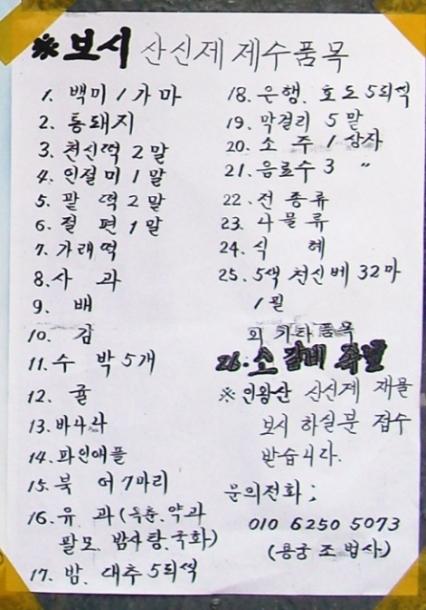 ※ 보시 산신제 제수품목
1. 백미 1가마
2. 통돼지
3. 천신떡 2말
4. 인절미 1말
5. 팥떡 2말
6. 절편 1말
7. 가래떡
8. 사과
9. 배
10. 감
11. 수박 5개
12. 귤
13. 바나나
14. 파인애플
15. 북어 7마리
16. 유과 (옥춘. 약과
팔모. 밤사탕. 국화)
17. 밤. 대추 5되씩
18. 은행. 호도 5되씩
19. 막걸리 5말
20. 소주 1상자
21. 음료수 3 〃
22. 전종류
23. 나물류
24. 식혜
25. 5색 천신베 32마
1필
외 기타품목
26. 소갈비 족발
※ 인왕산 산신제 재물
보시 하실분 접수
받습니다.
문의전화 ;
010 6250 5073
(용궁 조법사)